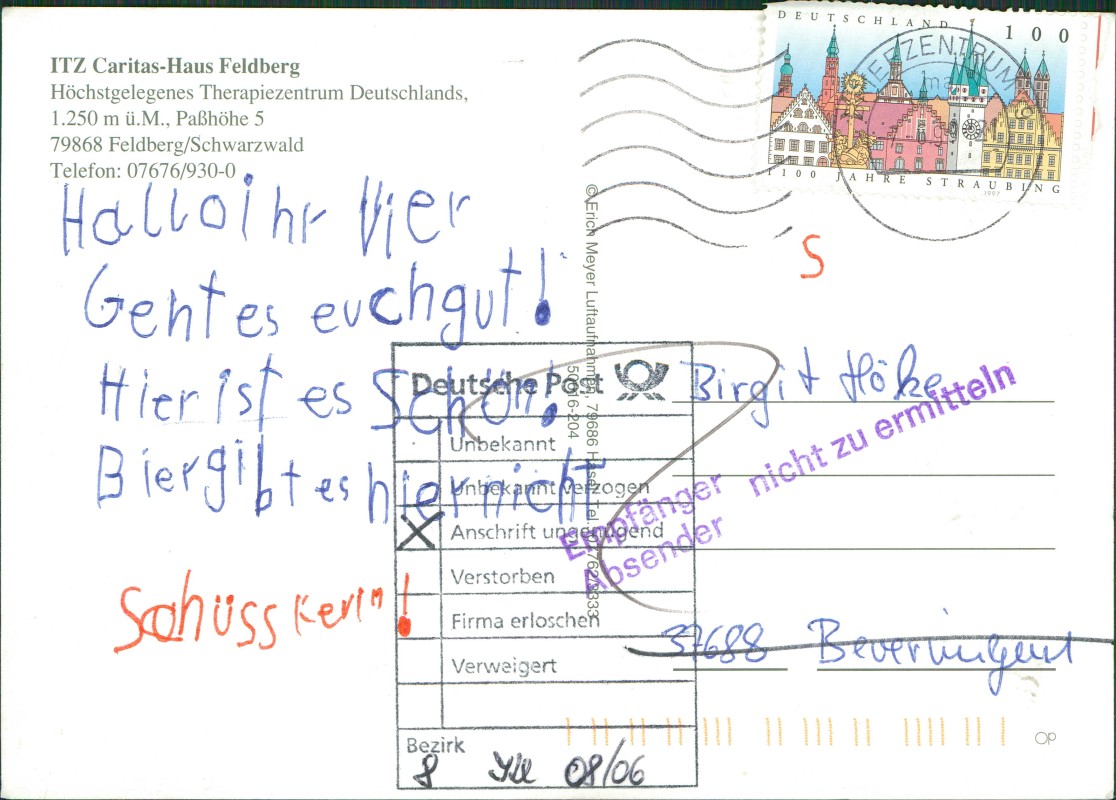 ITZ Caritas-Haus Feldberg
Höchstgelegenes Therapiezentrum Deutschlands,
1.250 m ü.M., Paßhöhe 5
79868 Feldberg/Schwarzwald
Telefon: 07676/930-0
Hallo ihr Vier
Geht es euch gut!
Hier ist es Schön!
Bier gibt es hier nicht
Schüss Kerin!
© Erich Meyer Luftaufnahmen, 79686 Hasel, Tel. 07762/9333
50916-204
DEUTSCHLAND 100
1100 JAHRE STRAUBING
1997
BRIEFZENTRUM
S
Birgit Höke
37688 Beverungen
Empfänger nicht zu ermitteln
Absender
Deutsche Post
Unbekannt
Unbekannt verzogen
X Anschrift ungenügend
Verstorben
Firma erloschen
Verweigert
Bezirk
8 08/06
OP